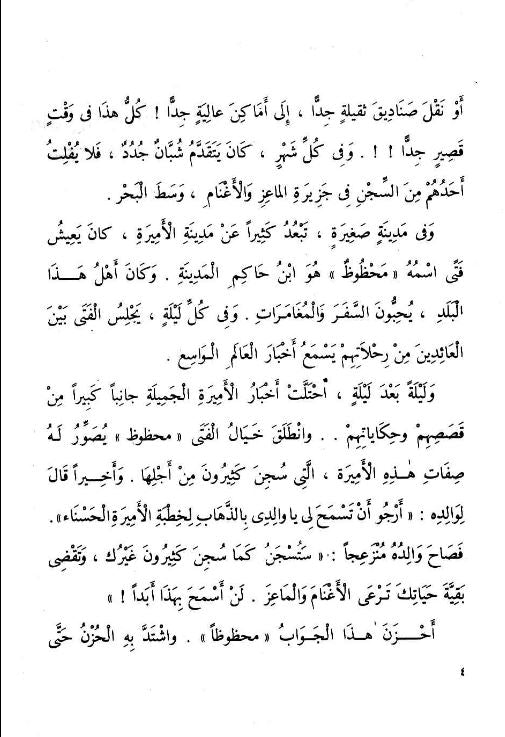 أَوْ نَقْلَ صَنَادِيقَ ثقيلةٍ جِدًّا ، إِلَى أَمَاكِنَ عالِيَةٍ جِدًّا ! كُلُّ هذَا فى وَقْتٍ
قَصِيرٍ جِدًّا ! ! . وَفِى كُلِّ شَهْرٍ ، كَانَ يَتَقَدَّمُ شُبَّانٌ جُدُدٌ ، فَلا يُفْلِتُ
أَحَدُهُمْ مِنَ السِّجْنِ فِى جَزِيرَةِ الماعِزِ وَالأَغْنَامِ ، وَسَطَ الْبَحْرِ .
وَفى مَدِينَةٍ صَغِيرَةٍ ، تَبْعُدُ كَثِيراً عَنْ مَدِينَةِ الْأَمِيرَةِ ، كانَ يَعِيشُ
فَتًى اسْمُهُ « مَحْظُوظٌ » هُوَ ابْنُ حَاكِمِ الْمَدِينَةِ . وَكَانَ أَهْلُ هَـذَا
الْبَلَدِ ، يُحِبُّونَ السَّفَرَ وَالْمُغَامَرَاتِ . وَفِى كُلِّ لَيْلَةٍ ، يَجْلِسُ الْفَتَى بَيْنَ
الْعَائِدِينَ مِنْ رِحْلاَتِهِمْ يَسْمَعُ أَخْبَارَ الْعَالَمِ الْـوَاسِعِ .
وَلَيْلَةً بَعْدَ لَيْلَةٍ ، احْتَلَّتْ أَخْبَارُ الْأَمِيرَةِ الْجَمِيلَةِ جانِباً كَبِيراً مِنْ
قَصَصِهِمْ وحِكَايَاتِهِمْ . . وانْطَلَقَ خَيَالُ الْفَتَى « محظوظ » يُصَوِّرُ لَـهُ
صِفَاتِ هٰذِهِ الْأَمِيرَة ، الَّتِى سُجِنَ كَثِيرُونَ مِنْ أَجْلِهَا . وَأَخِيـراً قَالَ
لِوَالِدِه : « أَرْجُو أَنْ تَسْمَحَ لِى يا والِدِى بِالذَّهَابِ لِخِطْبَةِ الْأَمِيرَةِ الْحَسْنَاءِ».
فَصَاحَ وَالِدُهُ مُنْزَعِجاً : « سَتُسْجَنُ كَمَا سُجِنَ كَثِيرُونَ غَيْرُكَ ، وَتَقْضِى
بَقِيَّةَ حَيَاتِكَ تَـرْعَى الْأَغْنَامَ وَالْمَاعِزَ . لَنْ أَسْمَحَ بِهَذَا أَبَداً ! »
أَحْـزَنَ هٰذَا الْجَـوَابُ « محظوظاً » . واشْتَدَّ بِهِ الْحُزْنُ حَتَّى
٤